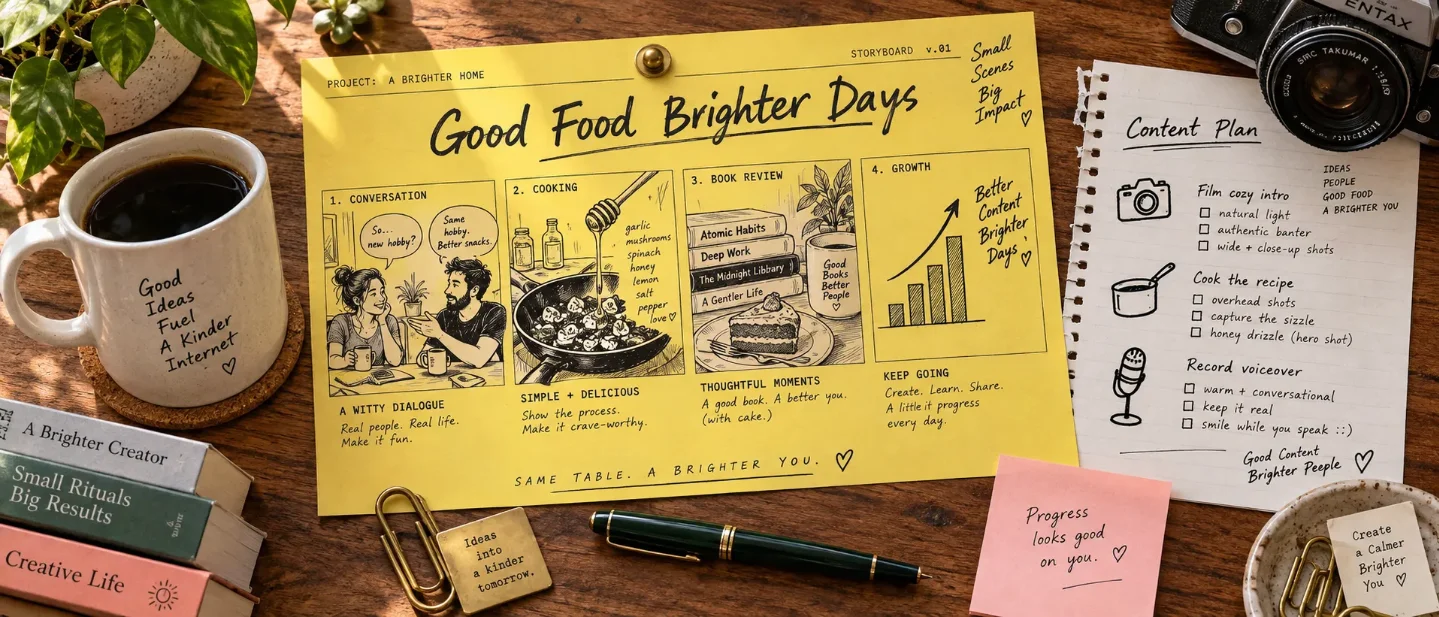 PROJECT: A BRIGHTER HOME
STORYBOARD v.01
Small
Scenes
Big
Impact
Good Food Brighter Days
1. CONVERSATION
So...
new hobby?
Same
hobby.
Better snacks.
A WITTY DIALOGUE
Real people. Real life.
Make it fun.
2. COOKING
garlic
mushrooms
spinach
honey
lemon
salt
pepper
love
SIMPLE + DELICIOUS
Show the process.
Make it crave-worthy.
3. BOOK REVIEW
Atomic Habits
Deep Work
The Midnight Library
A Gentler Life
Good
Books
Better
People
THOUGHTFUL MOMENTS
A good book. A better you.
(with cake.)
4. GROWTH
Better
Content
Brighter
Days
KEEP GOING
Create. Learn. Share.
A little it progress
every day.
SAME TABLE. A BRIGHTER YOU.
Good
Ideas
Fuel
A Kinder
Internet
A Brighter Creator
Small Rituals
Big Results
Creative Life
Ideas
into
a kinder
tomorrow.
ENTAX
Content Plan
IDEAS
PEOPLE
GOOD FOOD
A BRIGHTER YOU
Film cozy intro
natural light
authentic banter
wide + close-up shots
Cook the recipe
overhead shots
capture the sizzle
honey drizzle (hero shot)
Record voiceover
warm + conversational
keep it real
smile while you speak ::)
Good Content
Brighter Peeple
Progress
looks good
on you.
Create
a Calmer
Brighter
You